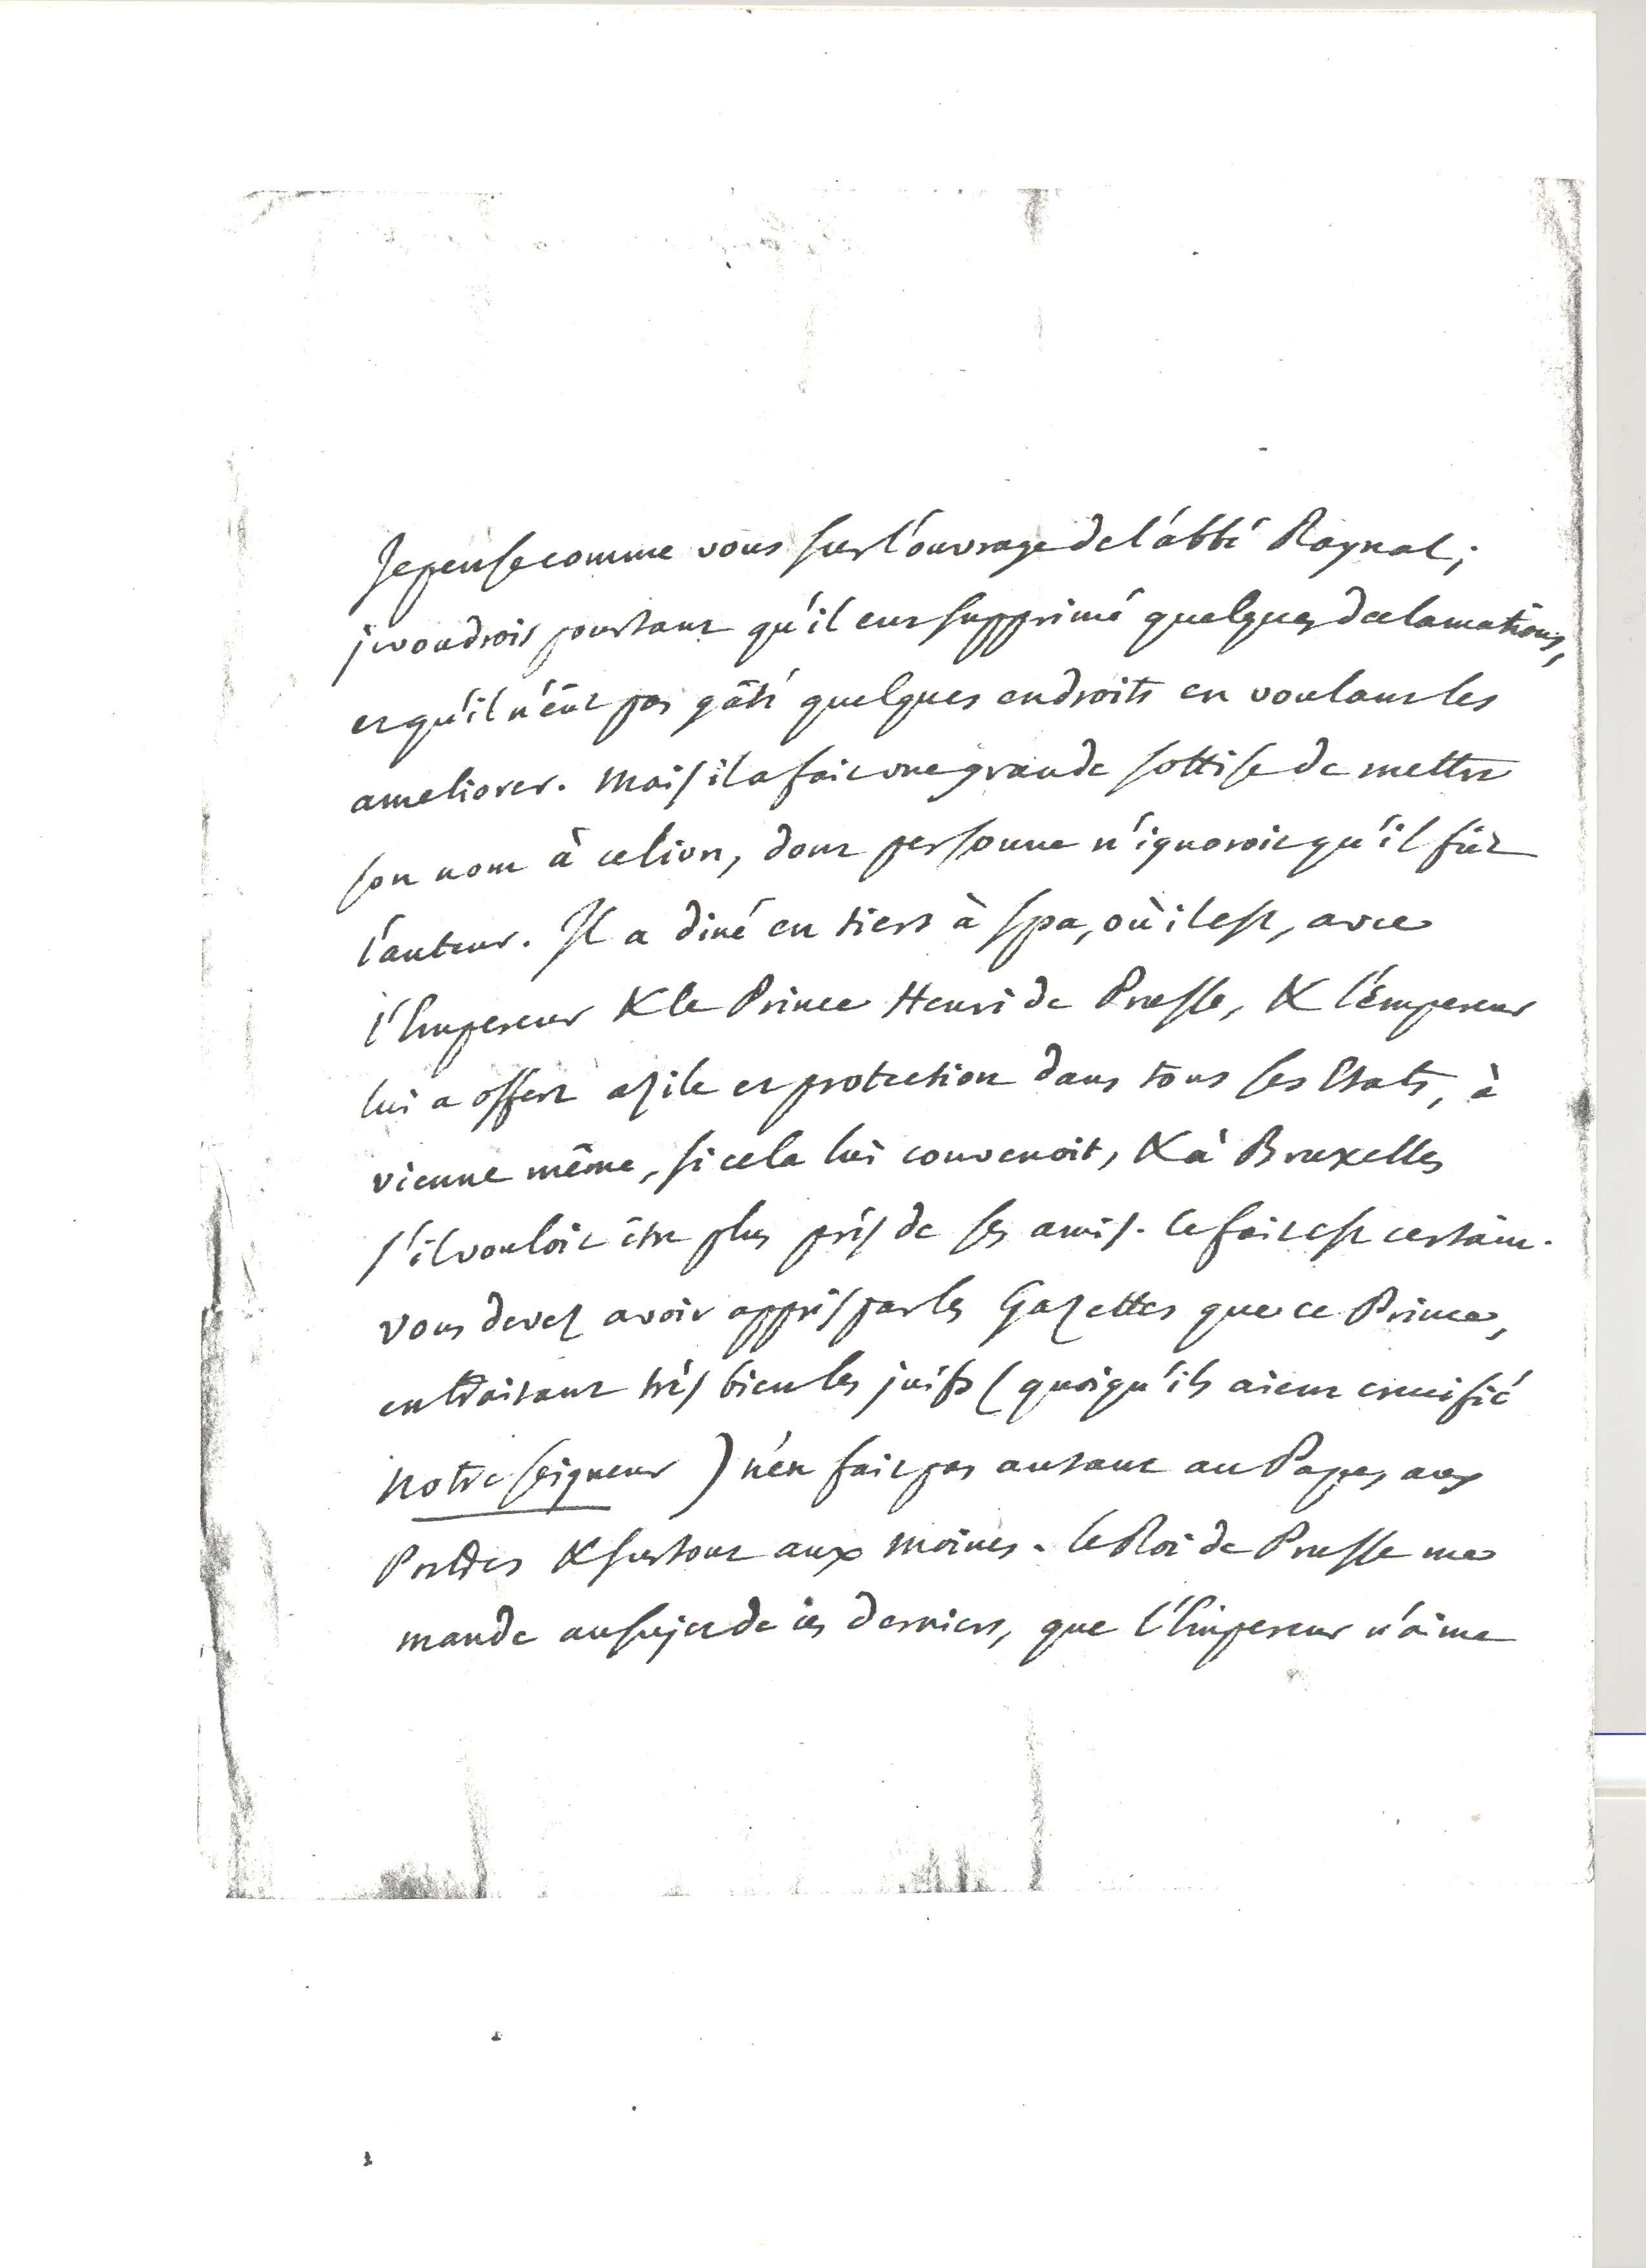 Je pense comme vous sur l'ouvrage de l'abbé Raynal;
je voudrois pourtant qu'il eut supprimé quelques declamations,
et qu'il n'eût pas gâté quelques endroits en voulant les
ameliorer. Mais il a fait une grande sottise de mettre
son nom à ce livre, dont personne n'ignoroit qu'il fût
l'auteur. Il a diné en tiers à Spa, où il est, avec
l'Empereur & le Prince Henri de Prusse, & l'Empereur
lui a offert azile et protection dans tous ses Etats, à
vienne même, si cela lui convenoit, & à Bruxelles
s'il vouloit être plus près de ses amis. Ce fait est certain.
Vous devez avoir appris par les Gazettes que ce Prince,
en traitant très bien les juifs (quoiqu'ils aient crucifié
notre seigneur) n'en fait pas autant au Pape, aux
Pretres & surtout aux moines. Le Roi de Prusse me
mande au sujet de ces derniers, que l'Empereur n'aime